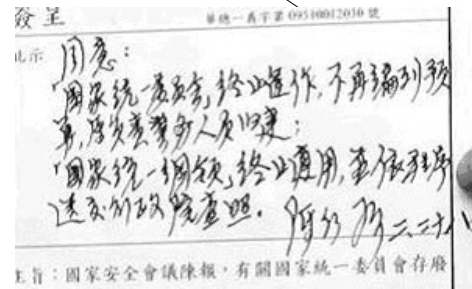 簽呈
華總一義字第09510012030號
批示 同意：
「國家統一委員會」終止運作，不再編列預
算，原負責業務人員歸建；
「國家統一綱領」終止適用，並依程序
送交行政院查照。 二、二十八
主旨：國家安全會議陳報，有關國家統一委員會存廢